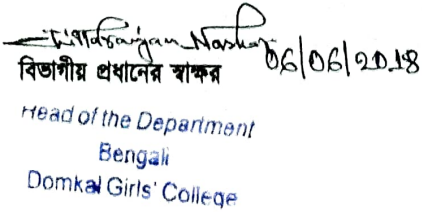 Naskar 06/06/2018
বিভাগীয় প্রধানের স্বাক্ষর
Head of the Department
Bengali
Domkal Girls' College